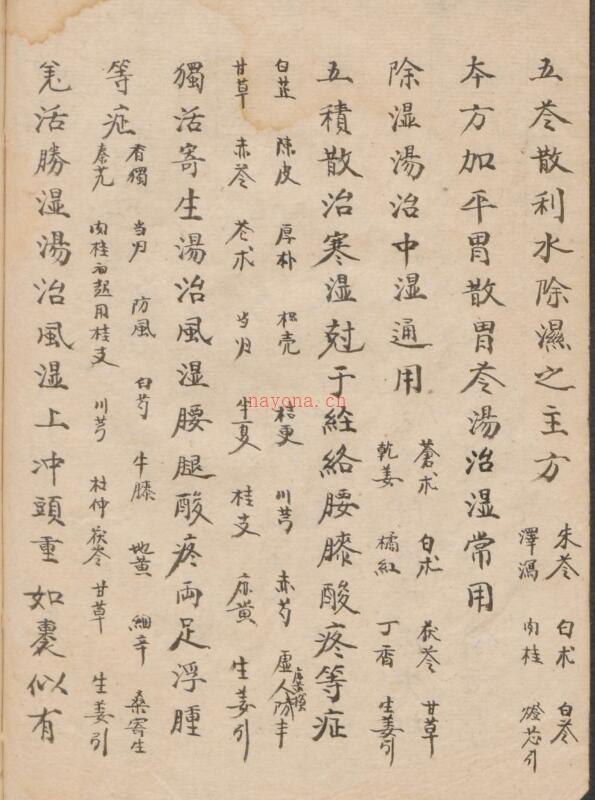 五苓散利水除濕之主方
朱苓 白术 白苓
澤瀉 肉桂 燈芯引
本方加平胃散胃苓湯治湿常用
除湿湯治中湿通用
蒼术 白术 茯苓 甘草
乾姜 橘紅 丁香 生姜引
五積散治寒湿尅于经絡腰膝酸疼等症
白芷 陳皮 厚朴 枳壳 桔更 川芎 赤芍 虚人防丰
甘草 赤苓 苍术 当归 半夏 桂支 麻黄 生姜引
獨活寄生湯治風湿腰腿酸疼両足浮腫
等症
香獨 当归 防風 白芍 牛膝 地黄 細辛 桑寄生
秦艽 肉桂 用桂支 川芎 杜仲 茯苓 甘草 生姜引
羌活勝湿湯治風湿上冲頭重如裹似有
nayona.cn